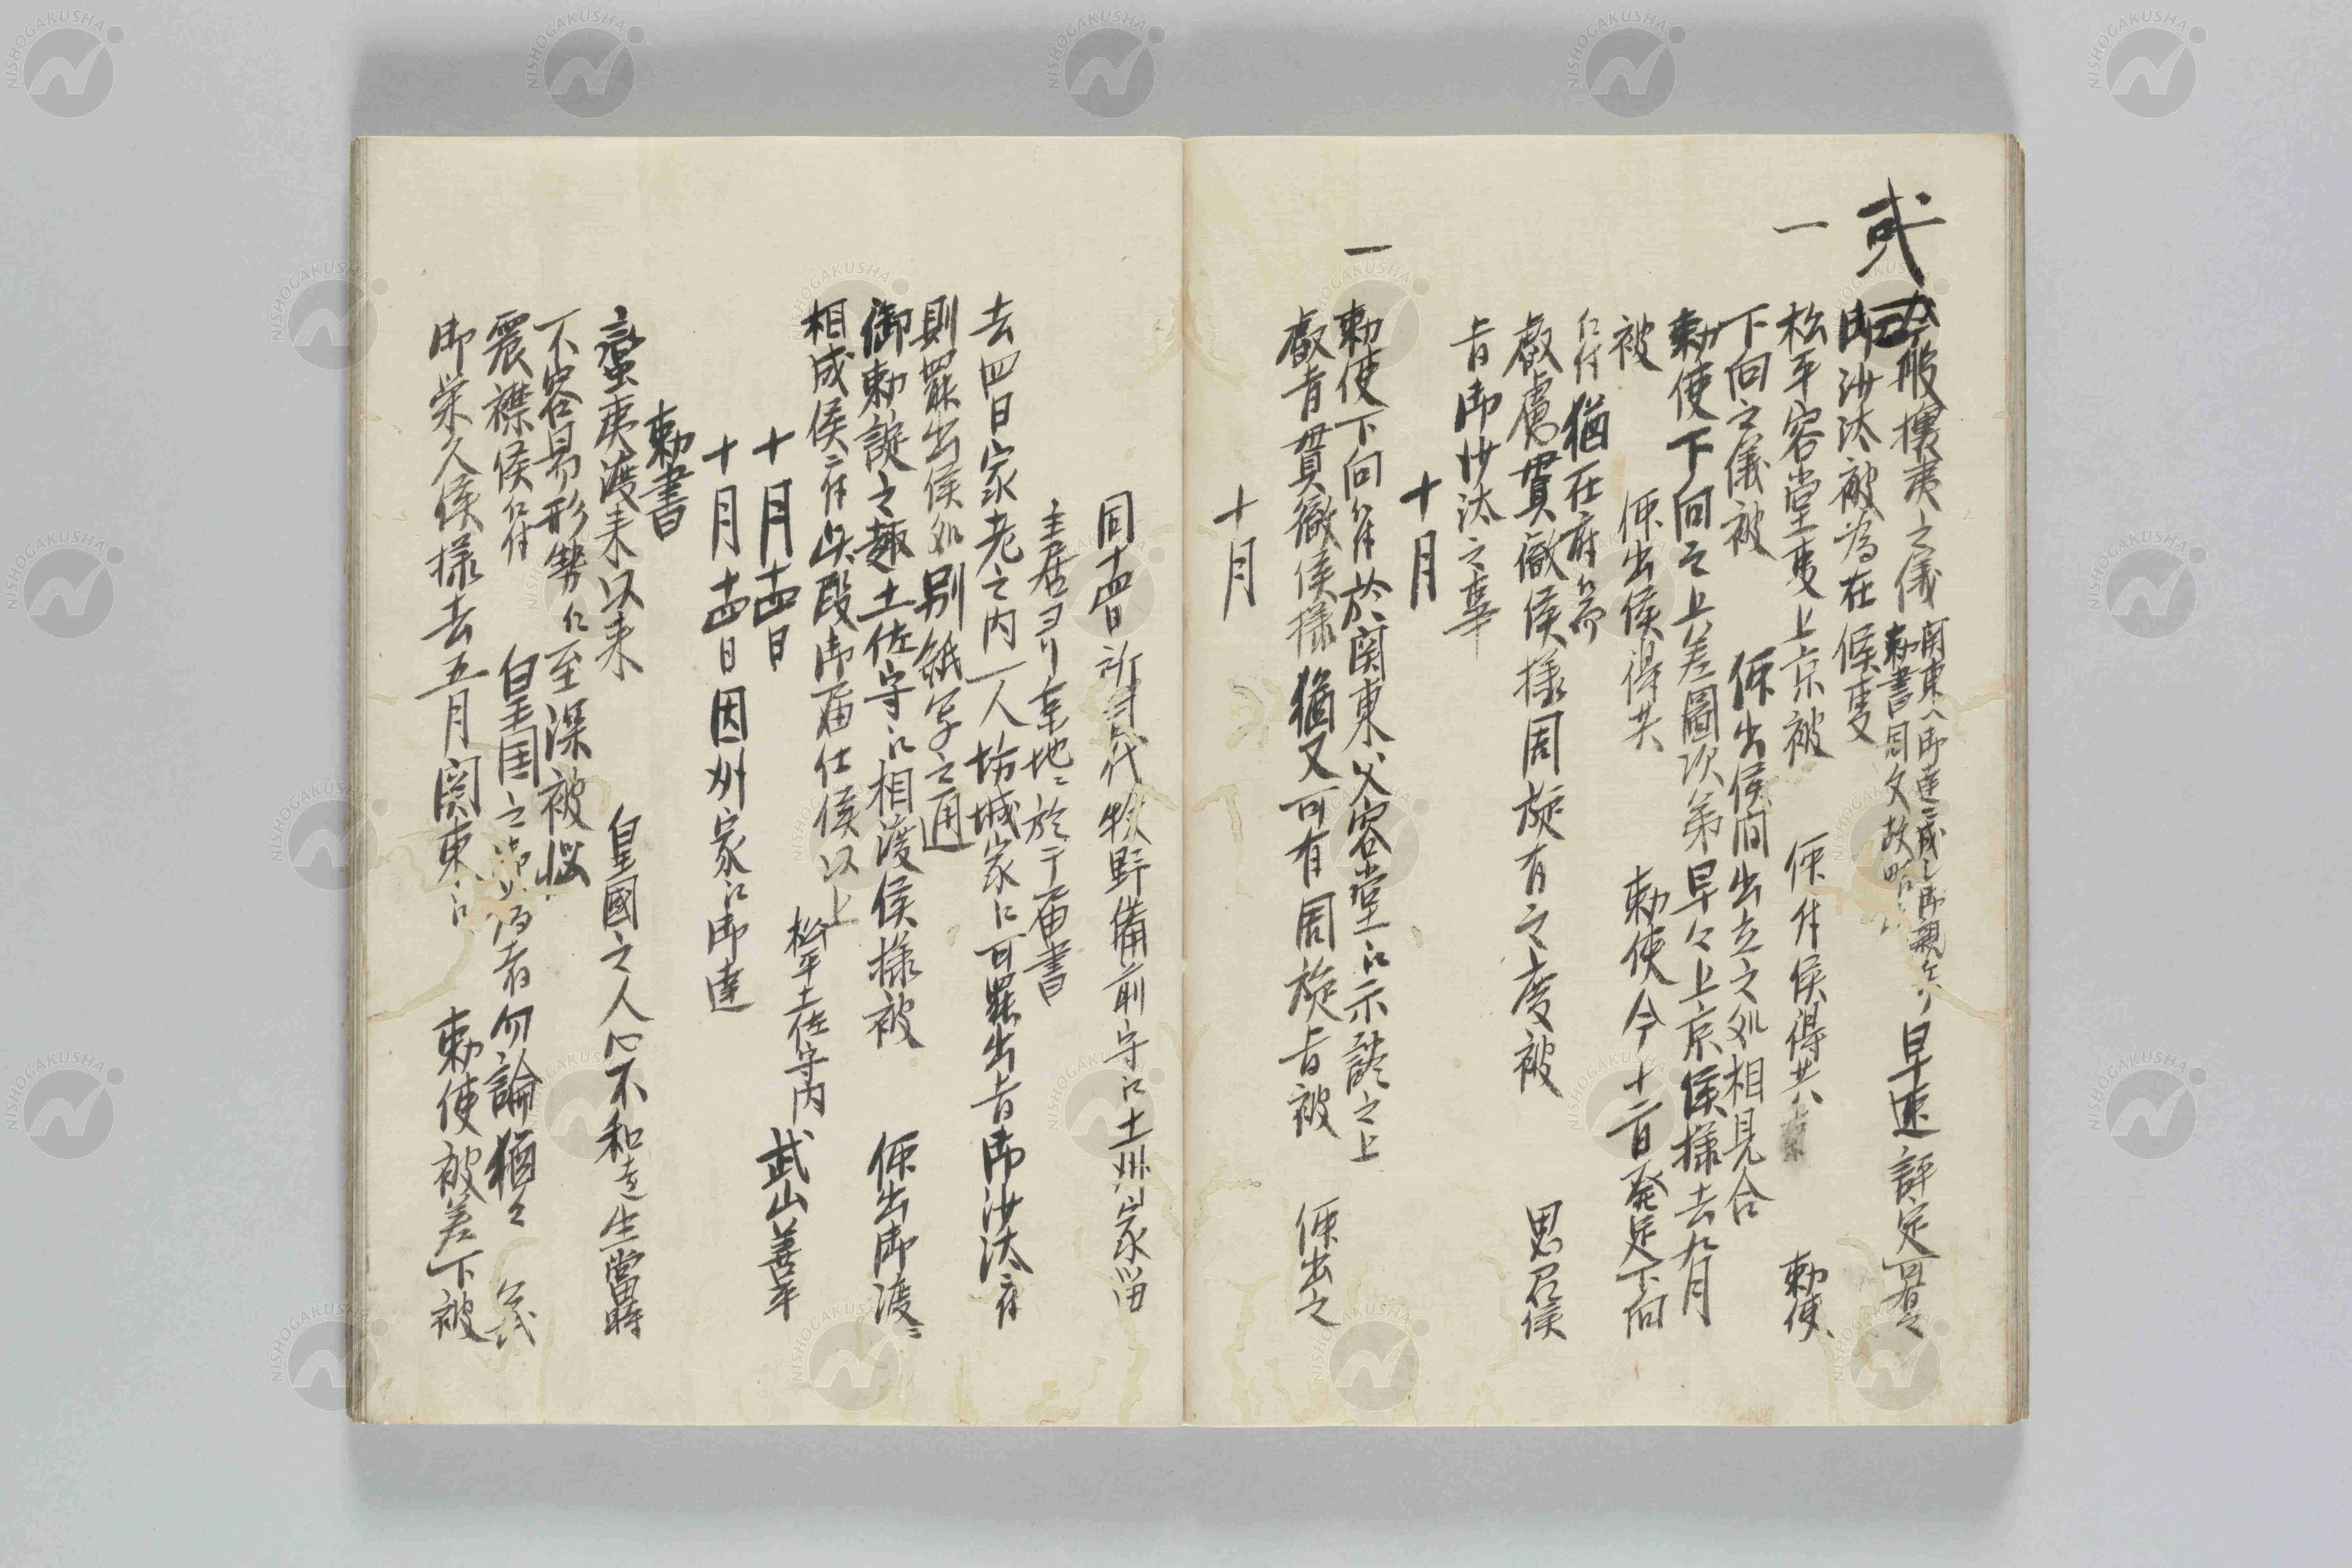 弐
今般攘夷之儀 関東へ御達ニ成ル御親兵 早速評定可有之
勅書同文故略
御沙汰被為在候事
一 松平容堂事上京被 仰付候得共 勅使
下向之儀被 仰出候間出立之処相見合
勅使下向之上差図次第早々上京候様去九月
被 仰出候得共 勅使今十二日発途下向
ニ付猶在府ニ而
叡慮貫徹候様周旋有之度被 思召候
旨御沙汰之事
十月
一 勅使下向ニ付於関東父容堂江示談之上
叡旨貫徹候様猶又可有周旋旨被 仰出之
十月
同十四日所司代牧野備前守江土州家留
主居ヨリ京地ニ於テ届書
去四日家老之内一人坊城家江可罷出旨御沙汰ニ付
則罷出候処別紙写之通
御勅諚之趣土佐守江相渡候様被 仰出御渡ニ
相成候ニ付此段御届仕候以上
松平土佐守内
十月十四日 武山善平
十月十四日因州家江御達
勅書
蛮夷渡来以来 皇國之人心不和を生當時
不容易形勢ニ至深被悩
震襟候ニ付 皇国之 者勿論猶々
御栄久候様去五月関東江 勅使被差下被